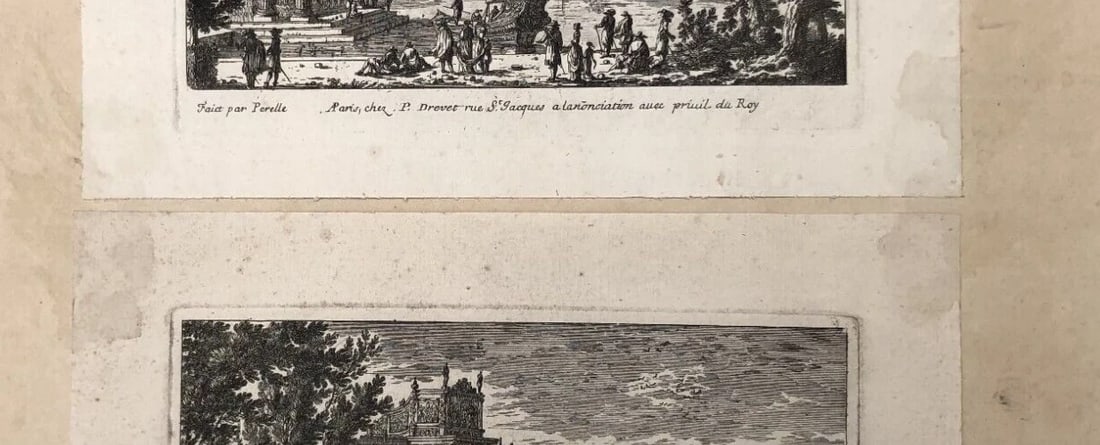 Faict par Perelle AParis, chez P. Drevet rue St. Jacques a lanõnciation auec priuil. du Roy